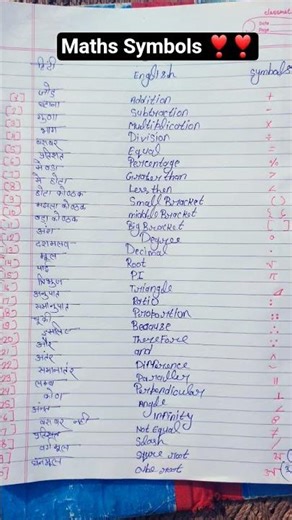 Maths Symbols ❣️❣️
classmate
Date
Page
हिंदी English Symbols
जोड़ Addition +
घटाना Subtraction -
गुणा Multiplication ×
भाग Division ÷
बराबर Equal =
प्रतिशत Percentage %
से बड़ा Greater than >
से छोटा Less then <
छोटा कोष्ठक Small Bracket ( )
मझला कोष्ठक middle Bracket { }
बड़ा कोष्ठक Big Bracket [ ]
अंश Degree °
दशमलव Decimal .
मूल Root √
पाई PI π
त्रिभुज Triangle
अनुपात Ratio :
समानुपात ::
चूंकि Because ∵
इसलिए Therefore ∴
और and ^
अंतर Difference ~
समानांतर ||
लम्ब Perpendicular ⊥
कोण Angle ∠
अनंत Infinity ∞
बराबर नहीं Not Equal ≠
Slash /
वर्गमूल root
घनमूल root